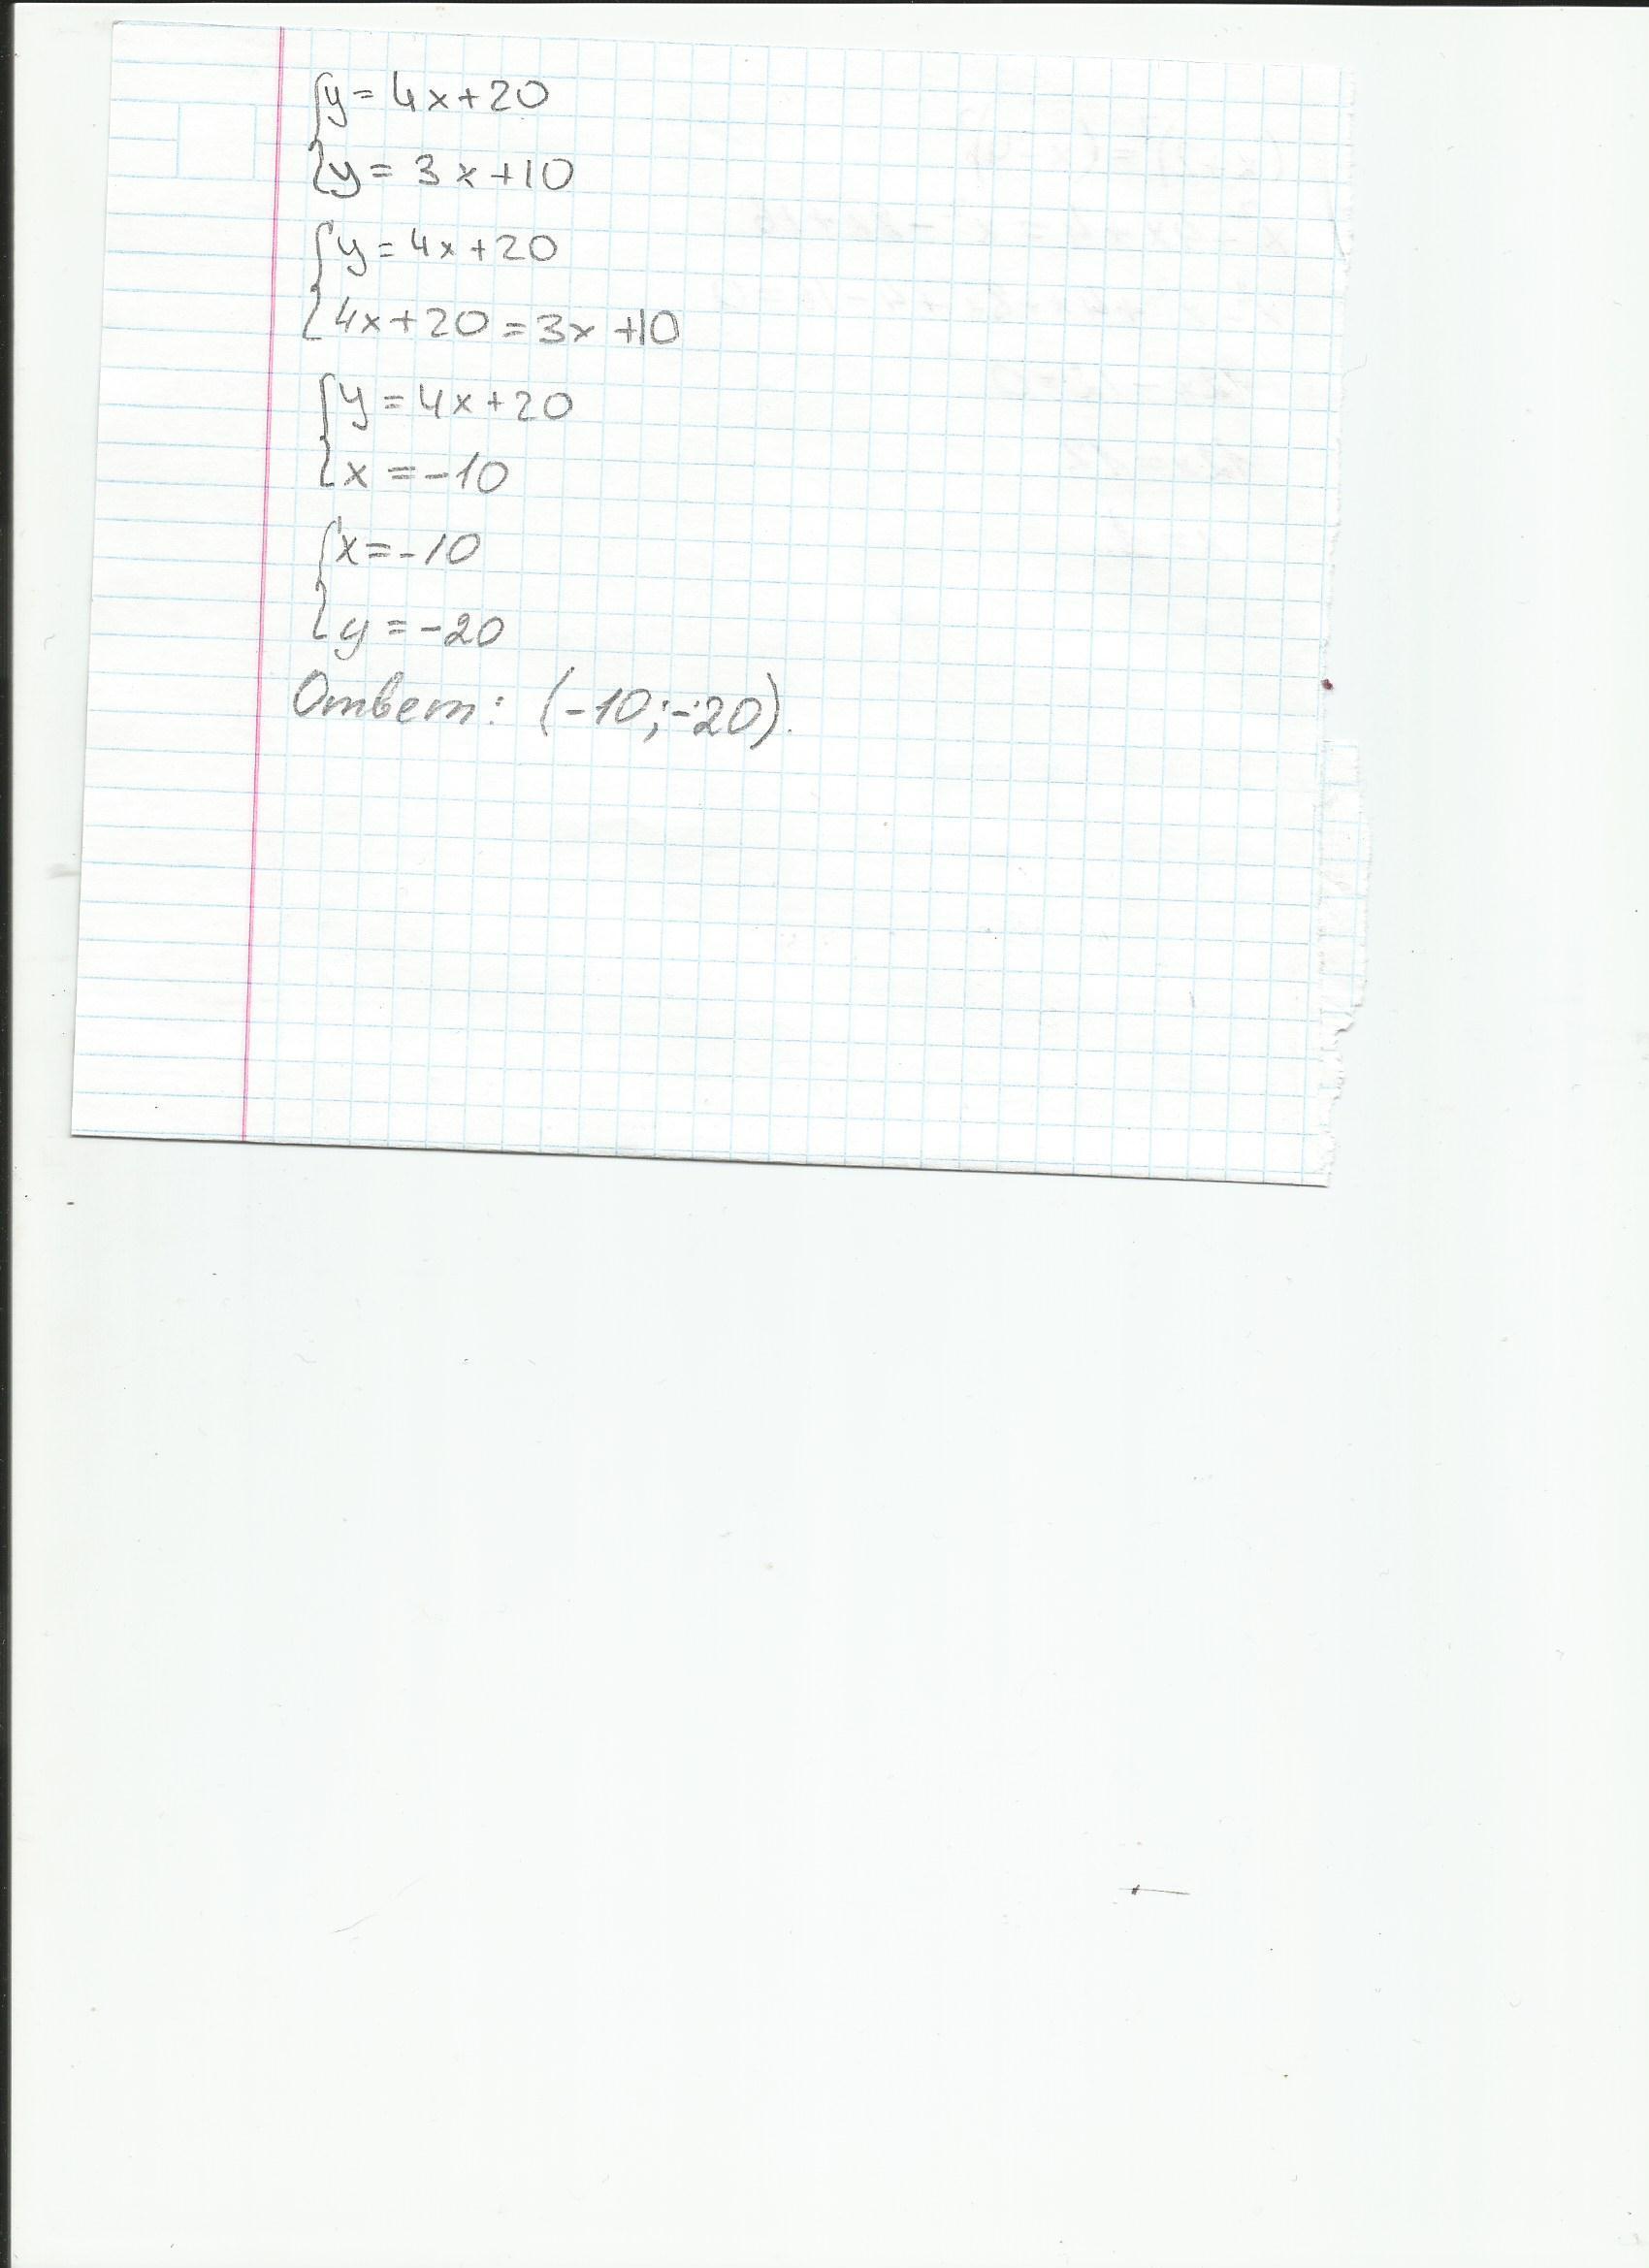 {y = 4x+20
{y = 3x+10
{y = 4x+20
{4x+20 = 3x+10
{y = 4x+20
{x = -10
{x = -10
{y = -20
Ответ: (-10; -20).